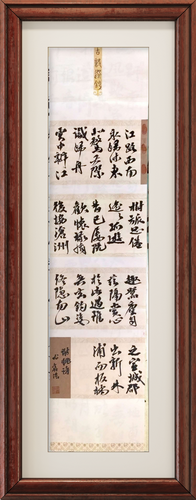 江路西南
永歸流東
北騖天際
識歸舟
雲中辨江
樹旅思倦
搖搖孤遊
昔已屢既
歡懷祿情
復協滄洲
趣囂塵自
茲隔賞心
於此遇雖
無玄豹姿
終隱南山
之宣城郡
出新林
浦向板橋
謝朓詩